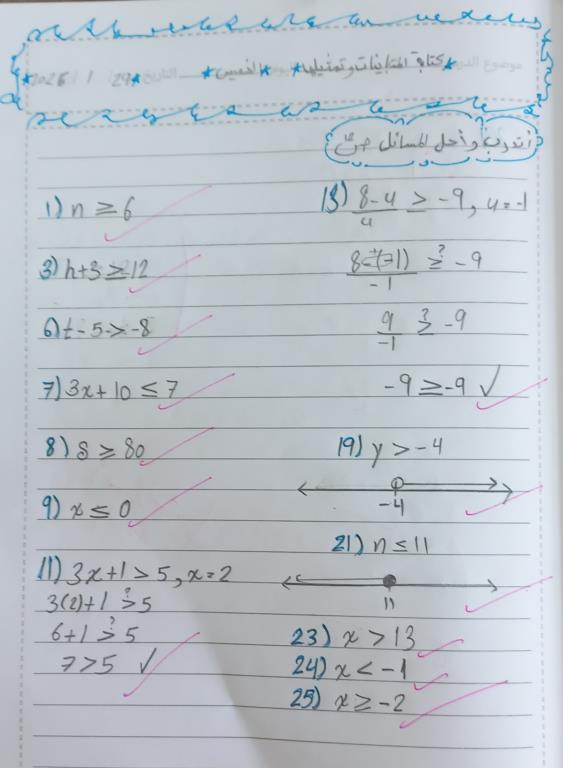 موضوع الدرس: كتابة المتباينات وتمثيلها اليوم الخميس التاريخ 29 / 1 / 2026
أتدرب وأحل المسائل
1) n ≥ 6
3) h+3 ≥ 12
6) t - 5 > -8
7) 3x + 10 ≤ 7
8) s ≥ 80
9) x ≤ 0
11) 3x+1 > 5, x = 2
3(2)+1 >? 5
6+1 >? 5
7 > 5 ✓
13) (8-u)/u ≥ -9, u = -1
(8-(-1))/-1 ≥? -9
9/-1 ≥? -9
-9 ≥ -9 ✓
19) y > -4
-4
21) n ≤ 11
11
23) x > 13
24) x < -1
25) x ≥ -2